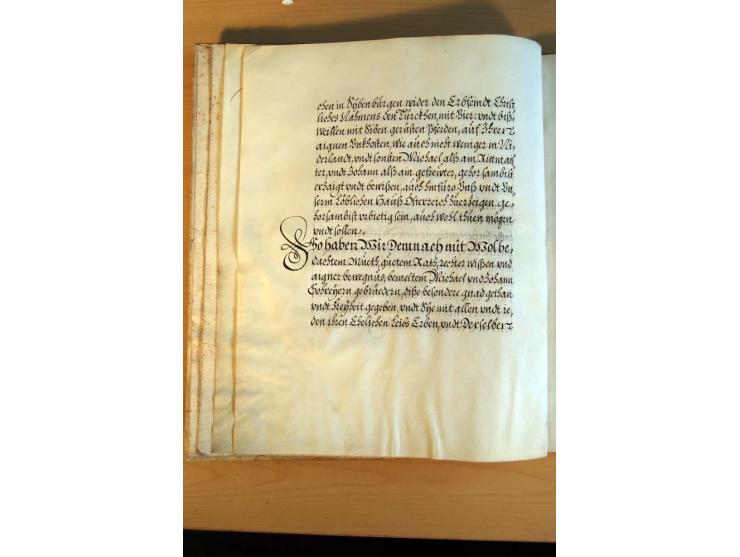 chen in Sÿbenbürgen wider den Erbfeindt Christ
liches Nahmens den Türckhen, mit Vier: vndt biß,
weillen mit Siben gerüsten Pferden, auf Ihre
aignen Vnkhosten, wie auch nicht weniger in Ni
derlandt, vndt sonsten Michael alß am Rittmaÿ
ster, vndt Johann alß am gefreÿter, gehorsambist
erzaigt vndt bewißen, auch hinfüro Vnß vndt Vn
serm Löblichen Hauß Össterreich zuerzeigen ge
horsambist vrbietig sein, auch wohl thuen mögen
vndt sollen.
So haben Wir Demnach mit Wolbe,
dachtem Mueth, guetem Rath, rechter wißen vnd
aigner bewegnus, bemeltem Michael vnd Johann
gebrüedern, diße besondere gnad gethan
vndt Freÿheit gegeben, vndt Sÿe mit allen vndt ie,
den ihren Ehelichen Leibs Erben, vndt Derselben